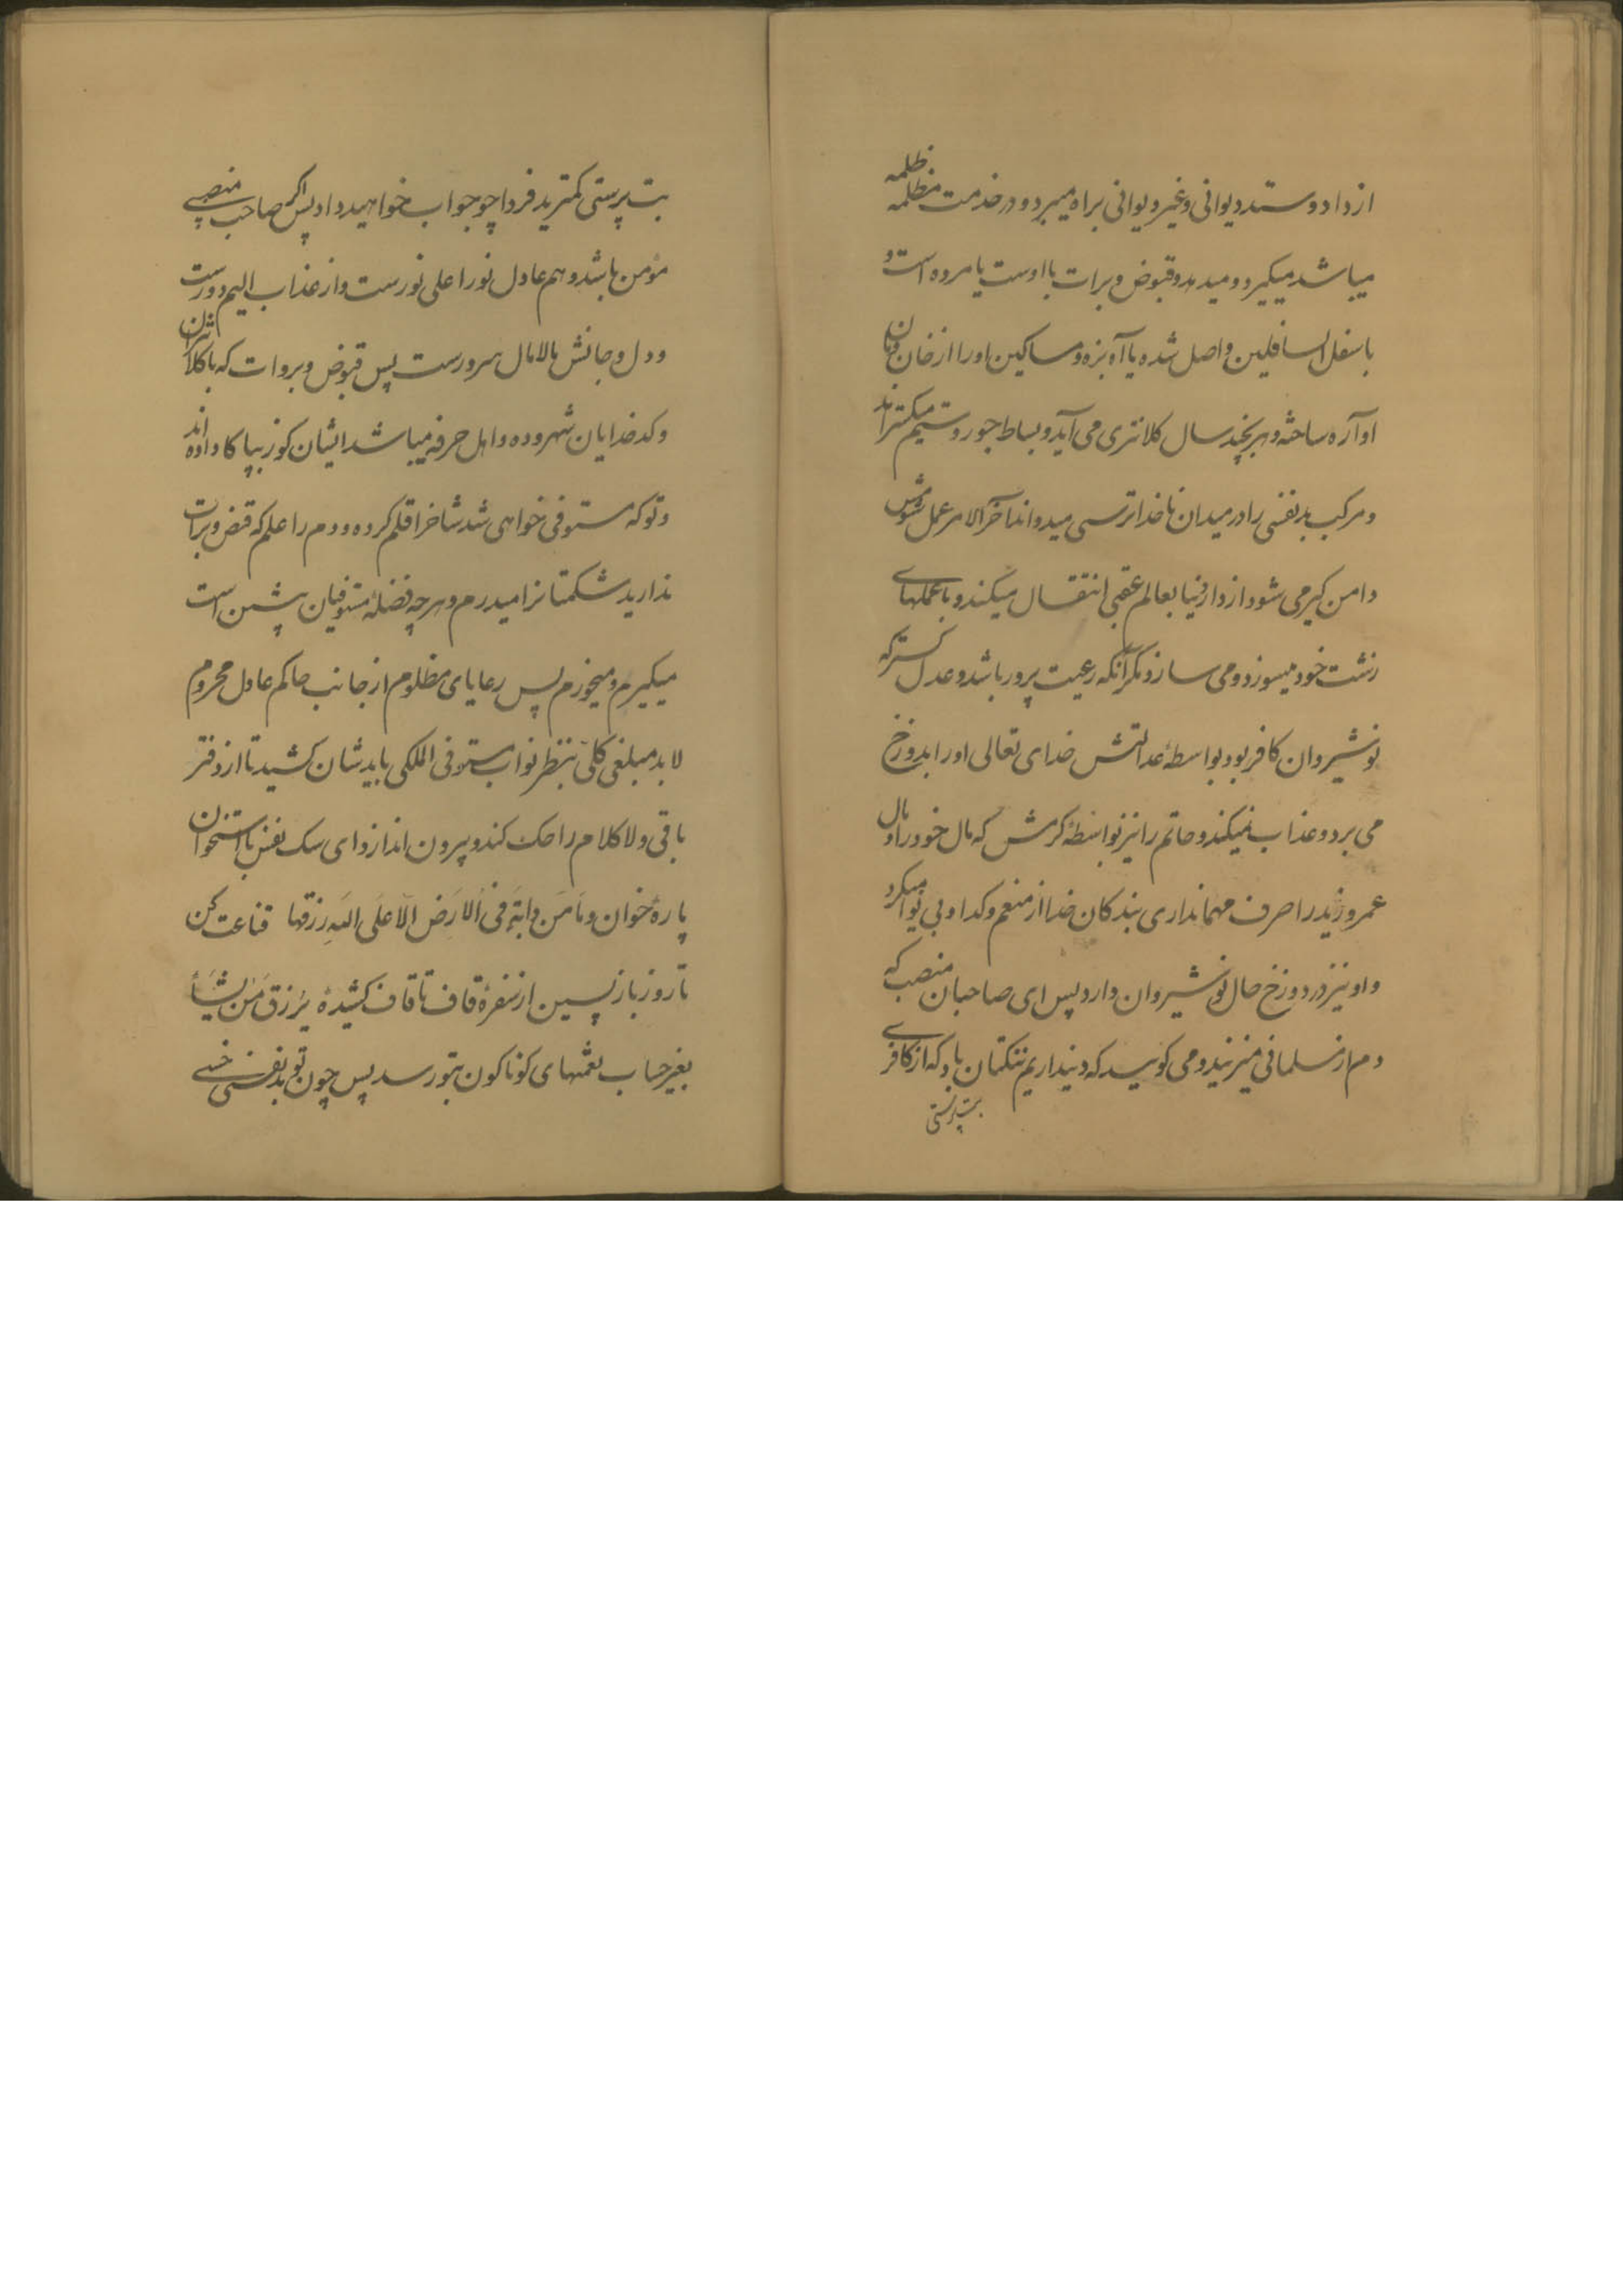 از داد و ستد دیوانی و غیر دیوانی براه میبرد و در خدمت مظلمه ظلمه
میباشد میکیرد و میدهد و قبوض و برات با اوست یا مرده است و
باسفل السافلین واصل شده یا آه بزه و مساکین او را از خان و مان
آواره ساخته و هر چند سال کلانتری می آید و بساط جور و ستم میکستراند
و مرکب بد نفسی را در میدان ناخدا ترسی میدواند آخر الامر عمل شومش
دامن کیر می شود از دار دنیا بعالم عقبی انتقال میکند و با عملهای
زشت خود میسوزد و می سازد مکر آنکه رعیت پرور باشد و عدل کستر که
نوشیروان کافر بود بواسطهٔ عدالتش خدای تعالی او را بدوزخ
می برد و عذاب نمیکند و حاتم را نیز بواسطهٔ کرمش که مال خود را و مال
عمرو و زید را صرف مهمانداری بندکان خدا از منعم و کدا و بی نوا میکرد
و او نیز در دوزخ حال نوشیروان دارد پس ای صاحبان منصب که
دم از مسلمانی میزنید و می کویید که دینداریم ننکتان باد که از کافری
بت پرستی
بت پرستی کمترید فردا چو جواب خواهید داد پس اکر صاحب منصبی
مؤمن باشد و هم عادل نورا علی نورست و از عذاب الیم دورست
و دل و جانش مالامال سرورست پس قبوض و بروات که با کلانتران
و کدخدایان شهر و ده و اهل حرفه میباشد ایشان کوز بپا کا داده اند
و تو که مستوفی خواهی شد شاخرا قلم کرده و دم را علم که قبض و برات
ندارید شکمتانرا میدرم و هر چه فضلهٔ مستوفیان پیشین است
میکیرم و میخورم پس رعایای مظلوم از جانب حاکم عادل محروم
لابد مبلغی کلّی بنظر نواب مستوفی الملکی بایدشان کشید تا از دفتر
باقی و لا کلام را حک کند و بیرون اندازد ای سک نفس با استخوان
پارهٔ خوان و ما من دابة فی الارض الا علی الله رزقها قناعت کن
تا روز بازپسین از سفرهٔ قاف تا قاف کشیدهٔ یرزق من یشاء
بغیر حساب نعمتهای کوناکون بتو رسد پس چون تو بد نفسی خسی